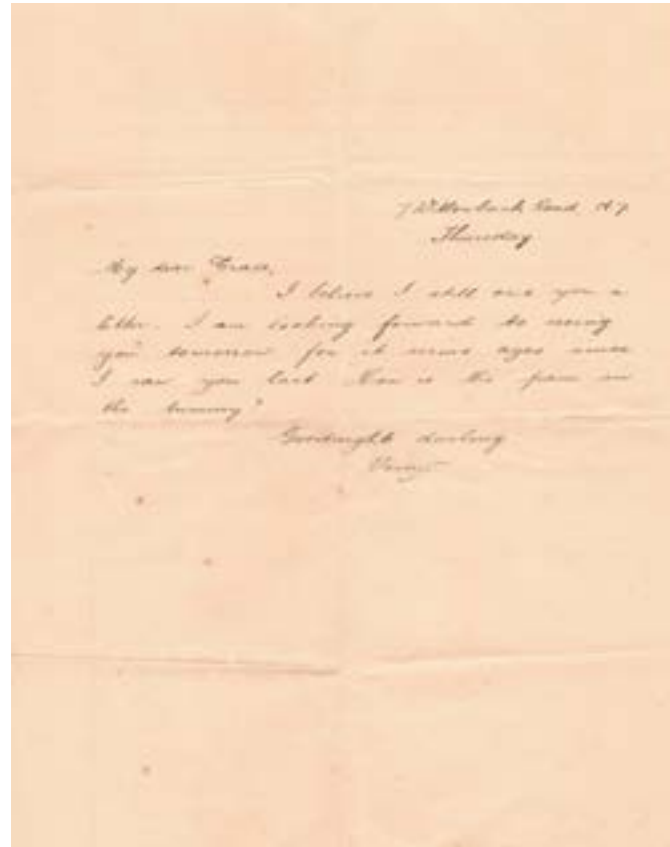 Road N 7
Thursday
My dear Grace,
I believe I still owe you a
letter. I am looking forward to seeing
you tomorrow for it seems ages since
I saw you last. How is the pain in
the tummy?
Goodnight darling